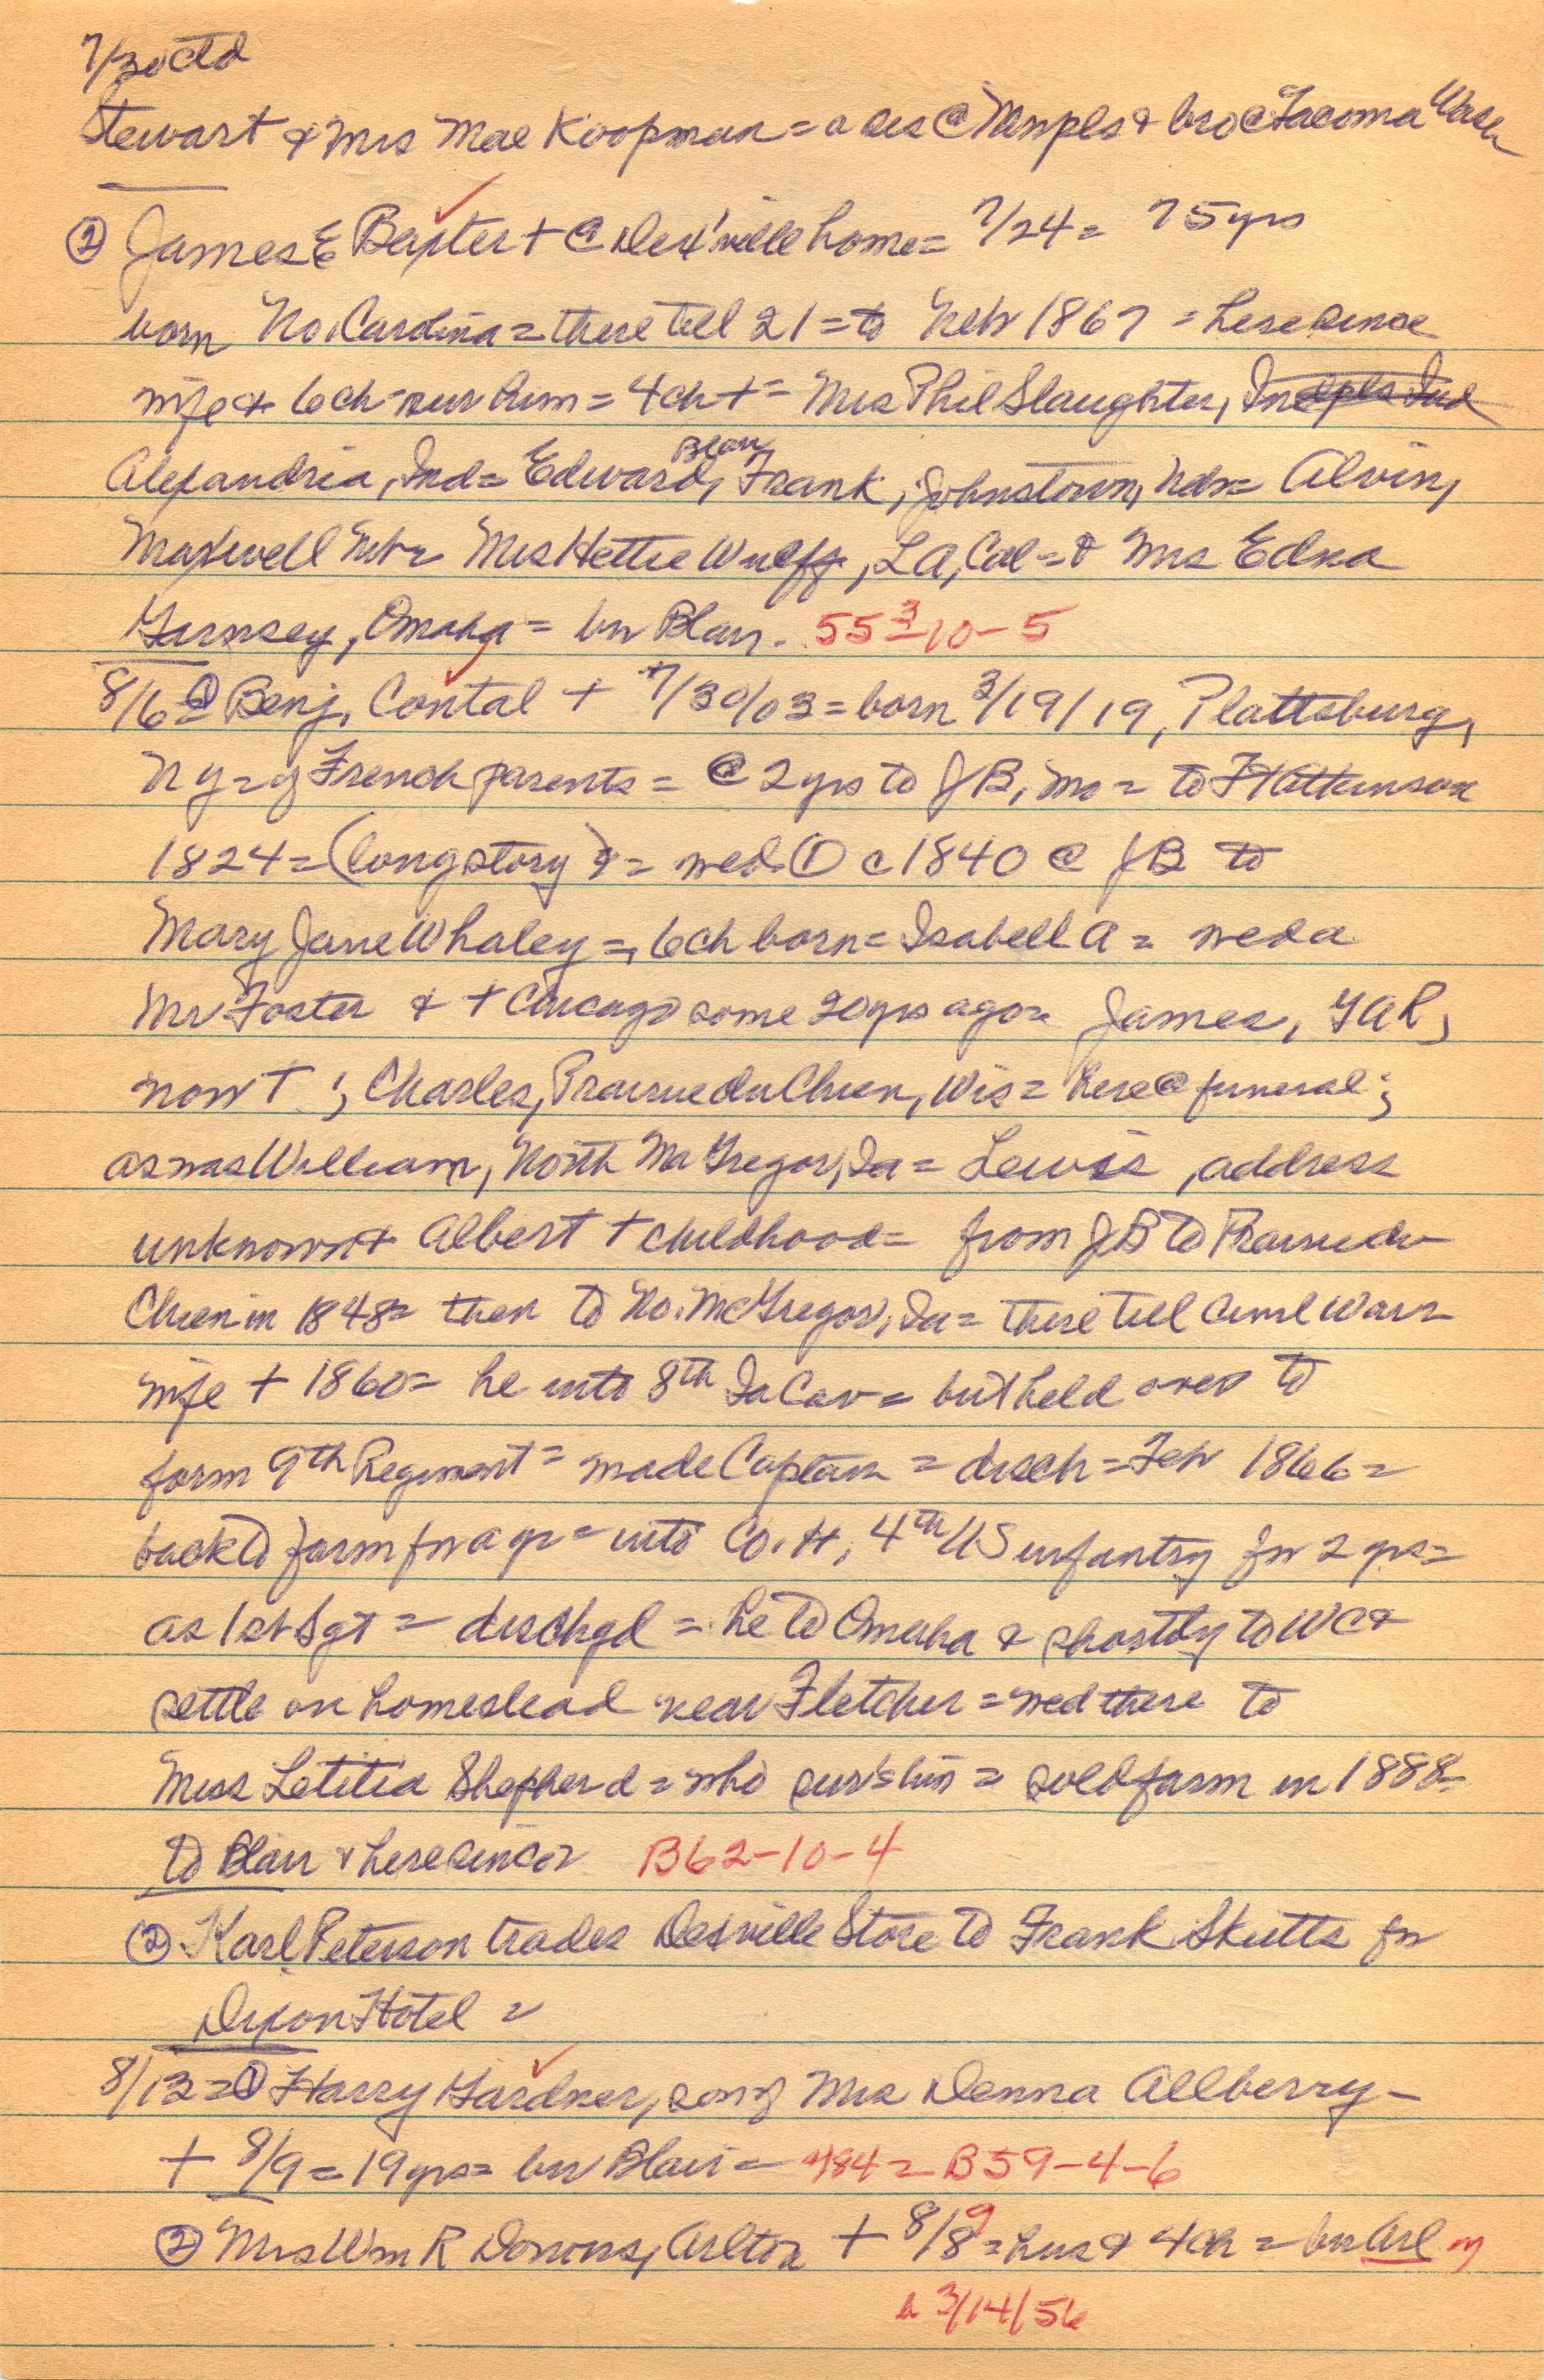 7/30 ctd
Stewart & Mrs Mae Koopman = a sis @ Mnpls & bro @ Tacoma Wash
② James E Baxter + @ Dex'ville home = 7/24 = 75 yrs
born No. Carolina = there till 21 = to Neb 1867 = here since
wife & 6 ch sur him = 4 ch + = Mrs Phil Slaughter, Indpls Ind
Alexandria, Ind = Edward, Blair, Frank, Johnstown, Neb = Alvin,
Maxwell Neb = Mrs Hettie Wulff, LA, Cal = & Mrs Edna
Garnsey, Omaha = bur Blair. 55 3-10-5
8/6 = ① Benj. Contal + 7/30/03 = born 3/19/19, Plattsburg,
NY = of French parents = @ 2 yrs to JB, Mo = to Ft Atkinson
1824 = (long story) & = wed ① c 1840 @ JB to
Mary Jane Whaley =, 6 ch born = Isabell A = wed a
Mr Foster & + Chicago some 20 yrs ago = James, GAR,
now + ; Charles, Prairie du Chien, Wis = here @ funeral;
as was William, North McGregor, Ia = Lewis, address
unknown & Albert + childhood = from JB to Prairie du
Chien in 1848 = then to No. McGregor, Ia = there till Civil War =
wife + 1860 = he into 8th Ia Cav = but held over to
form 9th Regiment = made Captain = disch = Feb 1866 =
back to farm for a yr = into Co. H, 4th US infantry for 2 yrs =
as 1st Sgt = dischgd = he to Omaha & shortly to WC &
settle on homestead near Fletcher = wed there to
Miss Letitia Shepherd = who surv's him = sold farm in 1888 =
to Blair & here since = B62-10-4
② Karl Peterson trades Desville Store to Frank Skutts for
Dixon Hotel =
8/13 = ① Harry Gardner, son of Mrs Denna Allberry -
+ 8/9 = 19 yrs = bur Blair = 484 = B59-4-6
② Mrs Wm R Downs, Arlton + 8/8 9 = hus & 4 ch = bur Arl
b 3/14/56